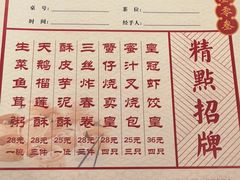 桌号：
日期：
时间：
经手人：
精點招牌
皇冠虾饺皇 36元 四只
蜜汁叉烧包 25元 三只
蟹仔烧卖皇 28元 四只
三丝炸春卷 28元 三件
酥皮芋泥 25元 一位
天鹅榴莲酥 28元 三件
生菜鱼茸粥 28元 一碗